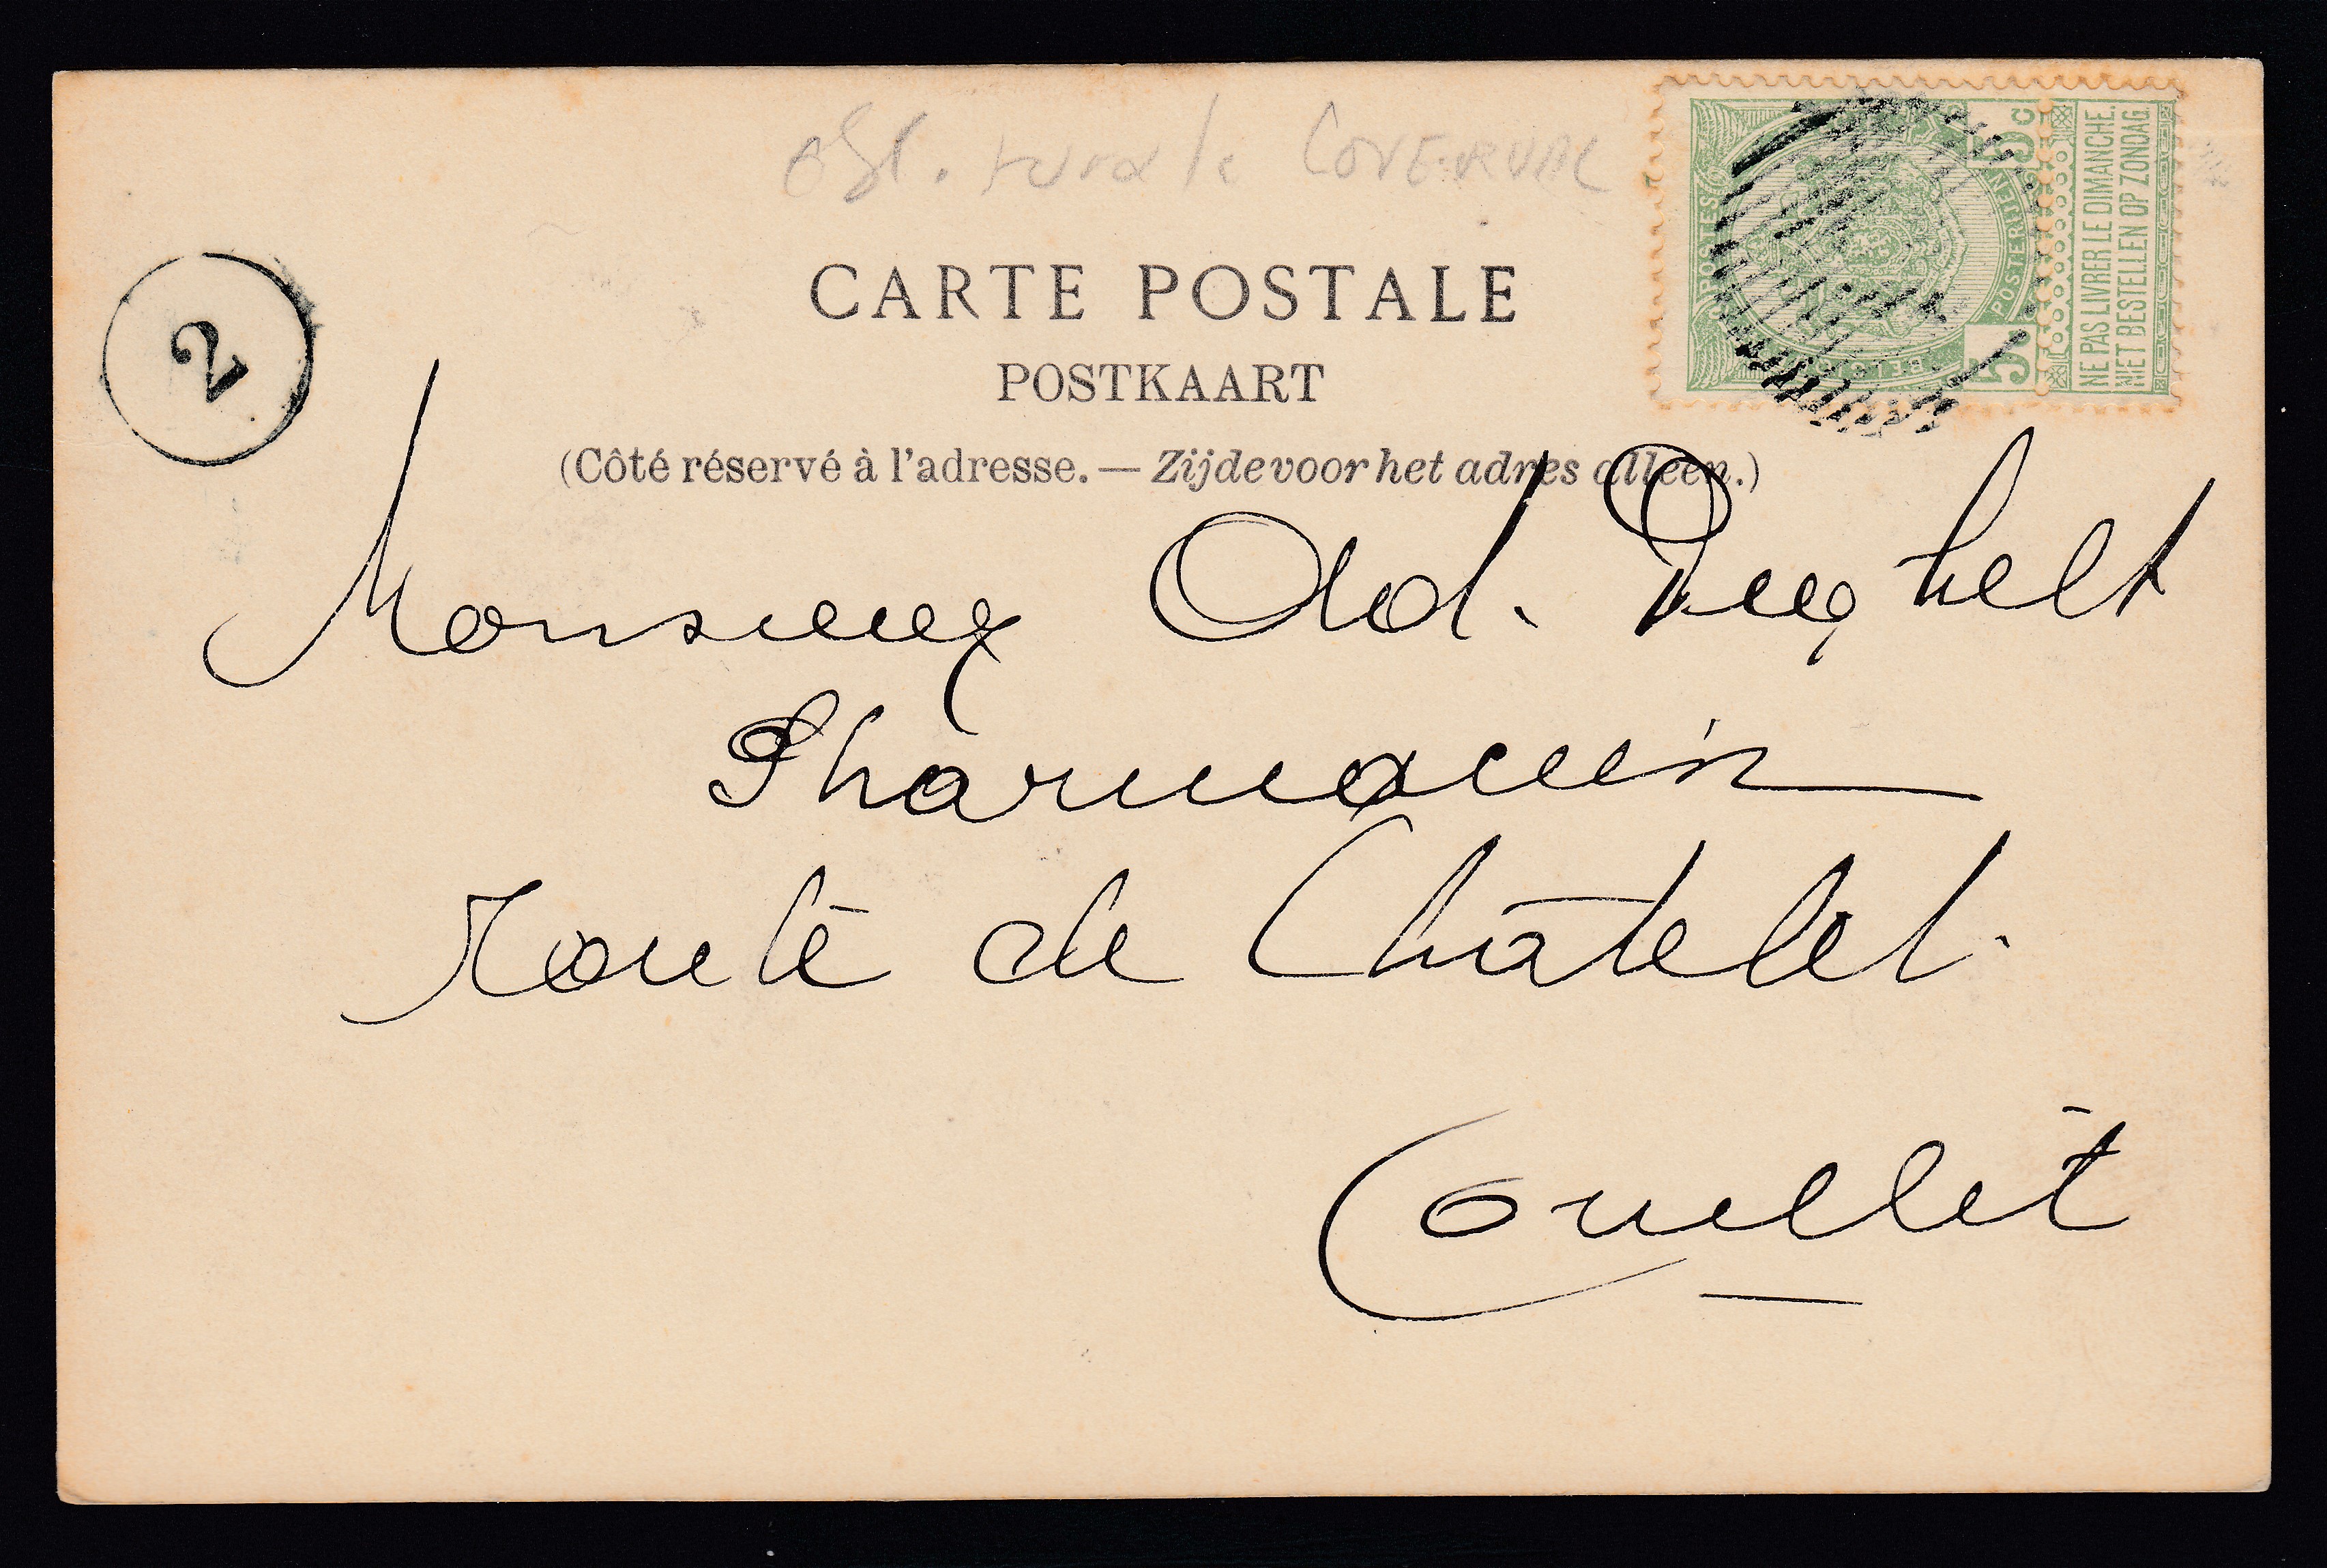 CARTE POSTALE
POSTKAART
(Côté réservé à l'adresse. — Zijde voor het adres alleen.)
2
POSTES
POSTERIJEN
5c
5
NE PAS LIVRER LE DIMANCHE.
NIET BESTELLEN OP ZONDAG.
Monsieur Od. Deghelt
Pharmacien
Route de Châtelet.
Couillet